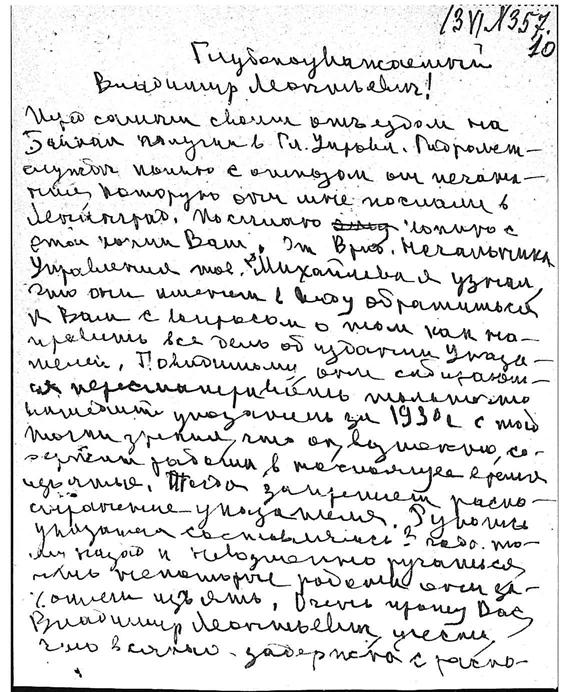 13 VI № 357.
10
Глубокоуважаемый
Владимир Леонтьевич!
Перед самым своим отъездом на
Байкал получил в Гл. Управл. Гидромет-
службы копию с отказом от печата-
ния, которую они мне послали в
Ленинград. Посылаю копию с
этой копии Вам. От Врио. Начальника
Управления тов. Михайлева я узнал,
что они имеют в виду обратиться
к Вам с вопросом о том как на-
править все дело об издании указа-
телей. Повидимому они собирают-
ся пересматривать только что
вышедший указатель за 1930 г с той
точки зрения, что он, возможно, со-
держит работы, в настоящее время
изъятые. Тогда запретят распо-
странение указателя. Рукопись
указателя составлялась 2 года то-
му назад и невозможно ручаться,
что некоторые работы они за-
хотели изъять. Очень прошу Вас
Владимир Леонтьевич, учесть,
что всякая задержка с распо-